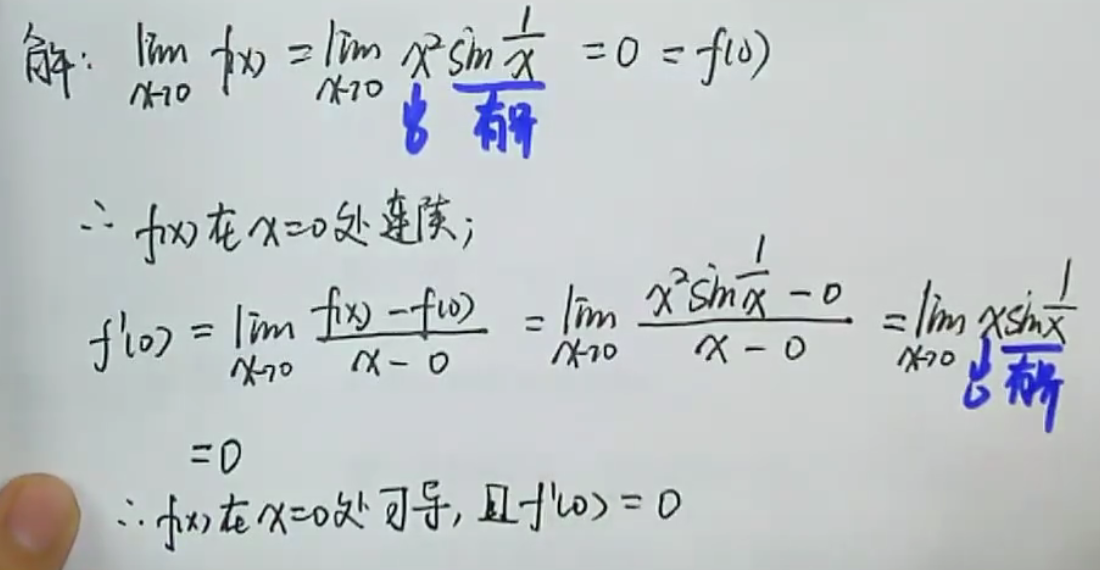 解: lim x→0 f(x) = lim x→0 x² sin 1/x = 0 = f(0)
↓ 0 有界
∴ f(x) 在 x=0 处 连续;
f'(0) = lim x→0 (f(x) - f(0))/(x - 0) = lim x→0 (x² sin 1/x - 0)/(x - 0) = lim x→0 x sin 1/x
↓ 0 有界
= 0
∴ f(x) 在 x=0 处 可导, 且 f'(0) = 0